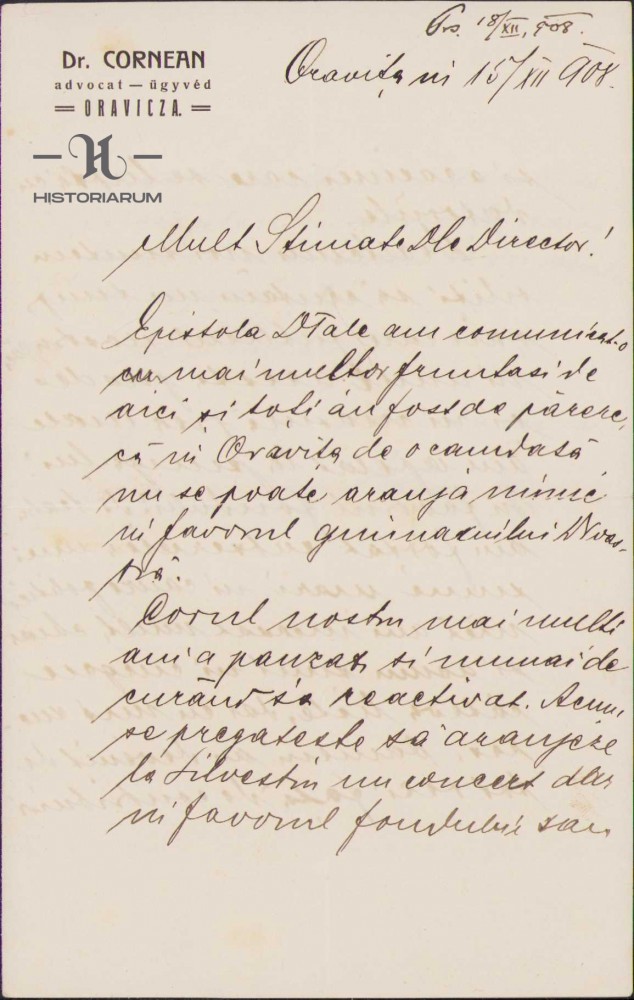 Prs. 18/XII, 908.
Dr. CORNEAN
advocat — ügyvéd
ORAVICZA.
Oravița în 15/XII 908.
H
HISTORIARUM
Mult Stimate Dle Director!
Epistola DTale am comunicat-o
cu mai multor fruntasi de
aici și toti au fost de părere,
că în Oravița de o camdată
nu se poate aranjà nimic
în favorul gimnaziului Dvoas-
tră.
Corul nostru mai multi
ani a pauzat si numai de
curând s'a reactivat. Acum
se pregateste să aranjeze
la Silvestru un concert dar
în favorul fondului sau